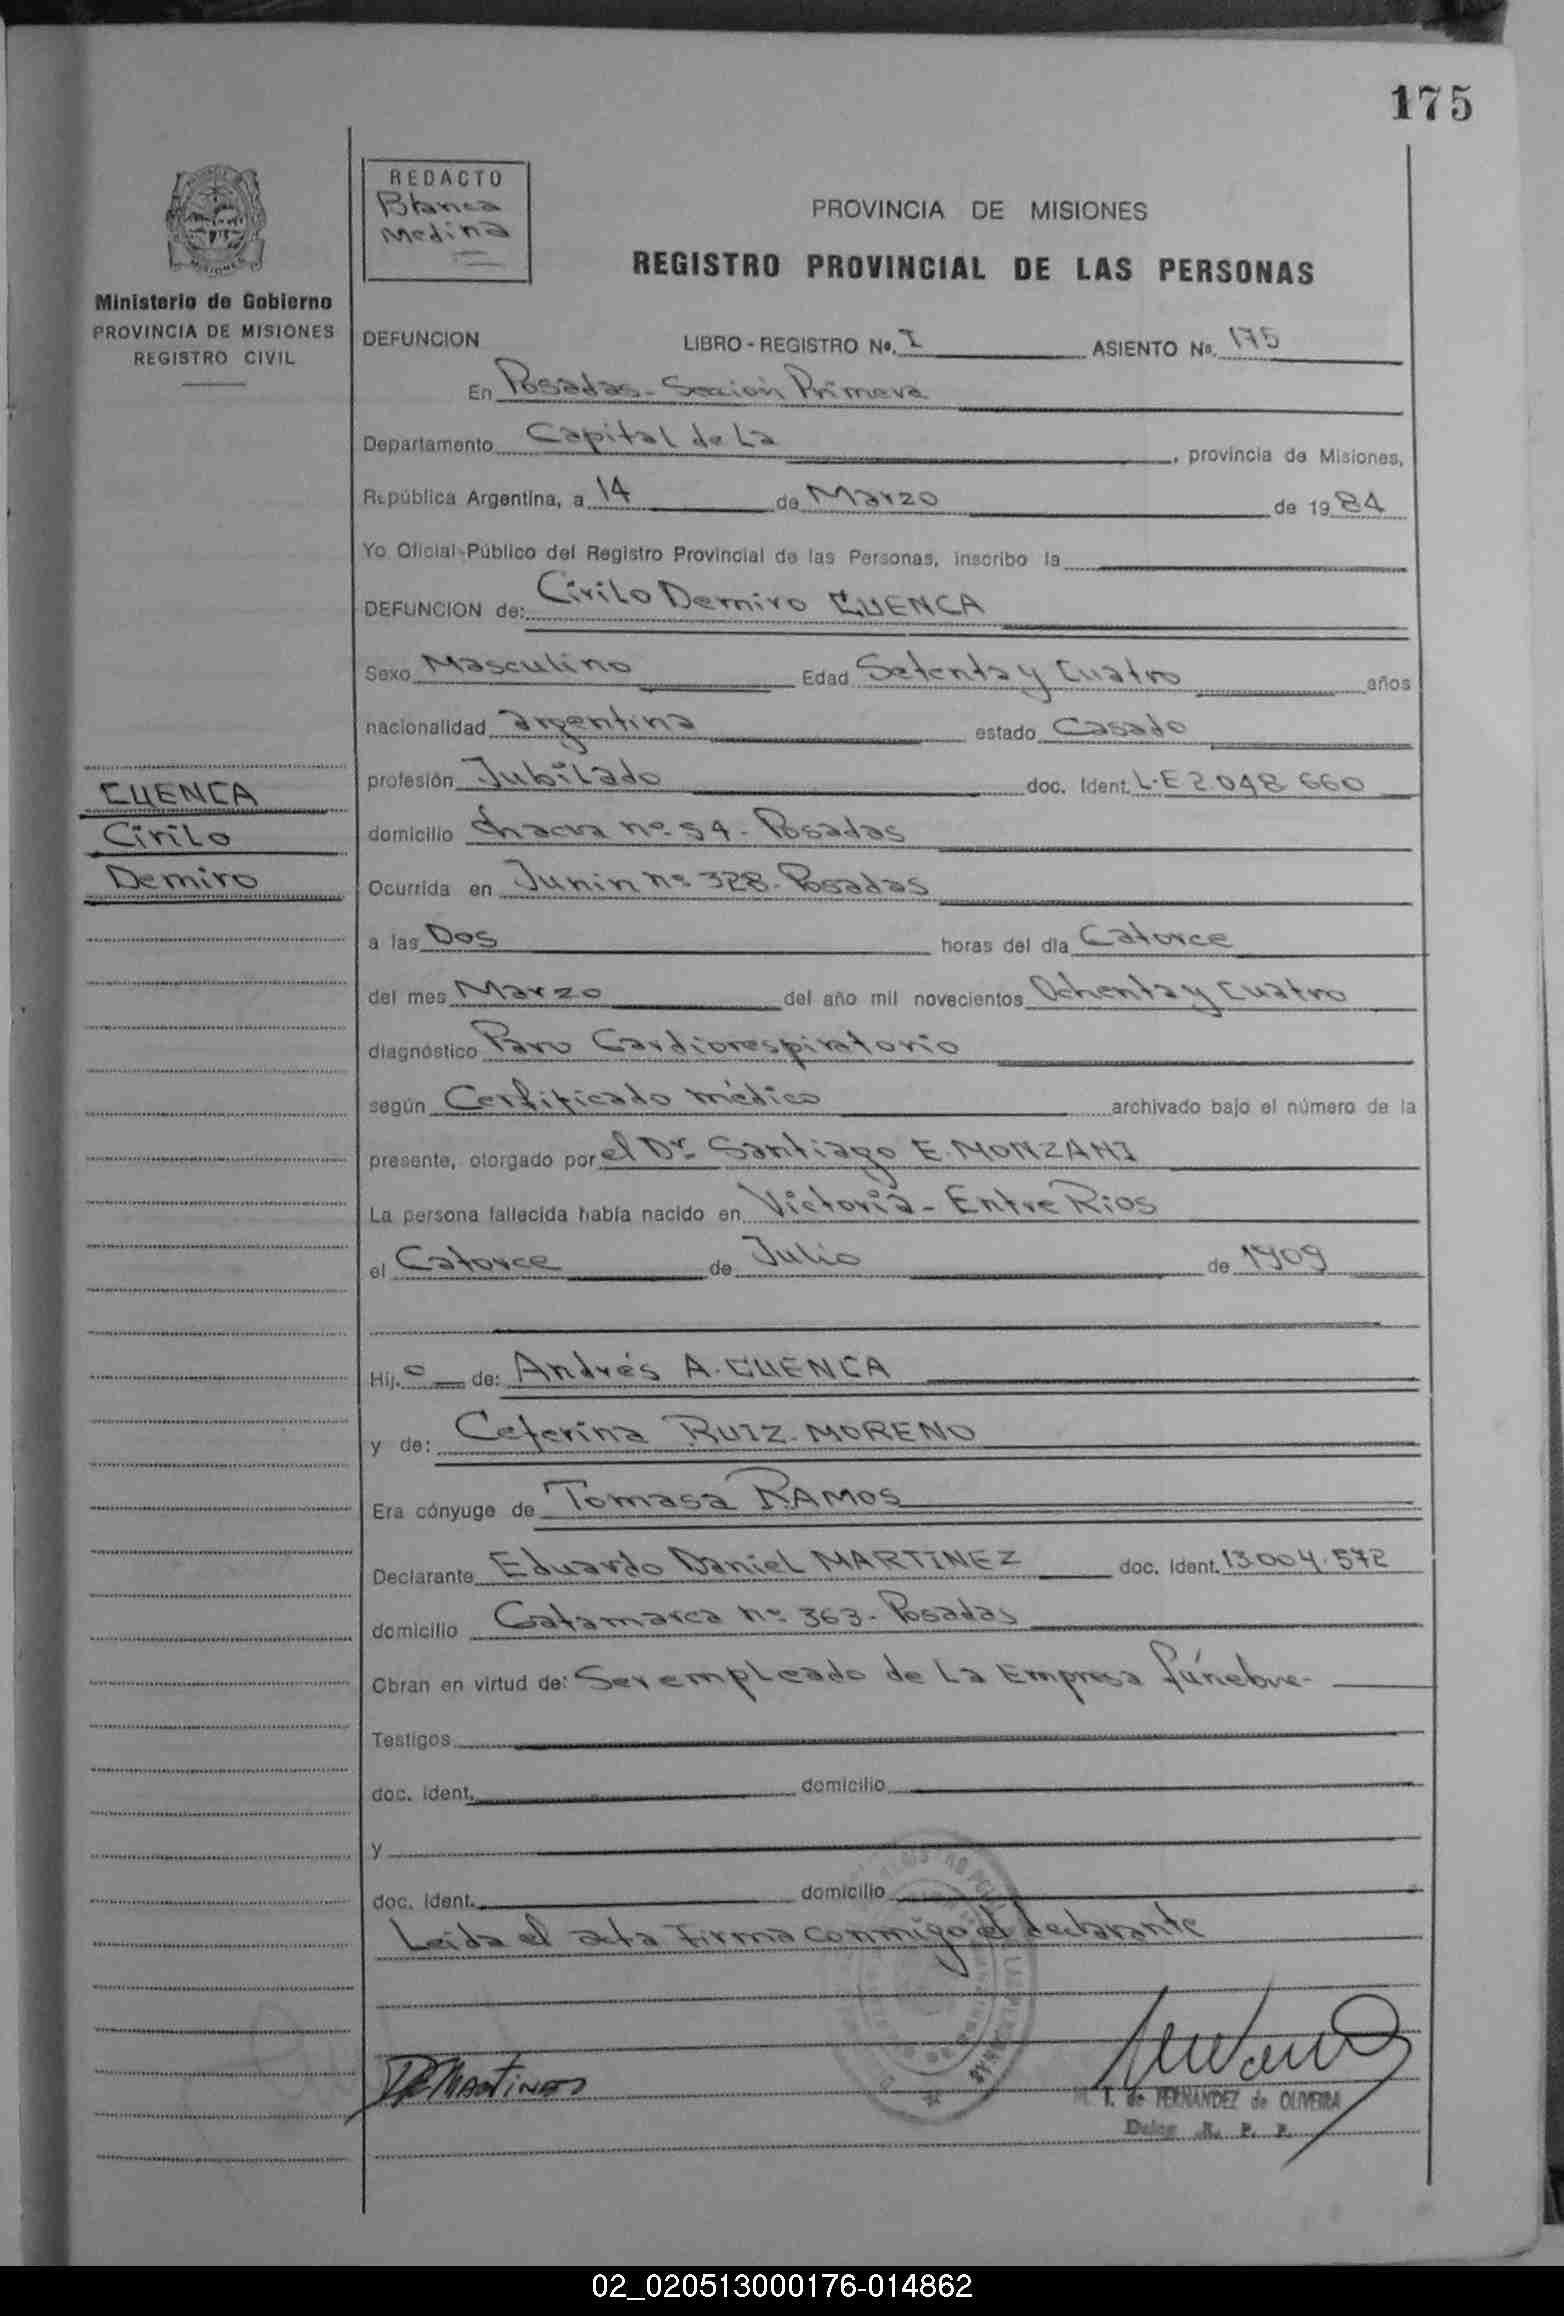 175
REDACTO
Blanca
Medina
PROVINCIA DE MISIONES
REGISTRO PROVINCIAL DE LAS PERSONAS
MISIONES
Ministerio de Gobierno
PROVINCIA DE MISIONES
REGISTRO CIVIL
DEFUNCION LIBRO - REGISTRO Nº. I ASIENTO Nº. 175
En Posadas - Sección Primera
Departamento Capital de La , provincia de Misiones,
República Argentina, a 14 de Marzo de 1984
Yo Oficial Público del Registro Provincial de las Personas, inscribo la
DEFUNCION de: Cirilo Demiro CUENCA
Sexo Masculino Edad Setenta y Cuatro años
nacionalidad argentina estado Casado
profesión Jubilado doc. Ident. L.E 2.048.660
CUENCA
Cirilo
Demiro
domicilio chacra nº 54 - Posadas
Ocurrida en Junin nº 328 - Posadas
a las Dos horas del día Catorce
del mes Marzo del año mil novecientos Ochenta y cuatro
diagnóstico Paro Cardiorespiratorio
según Certificado médico archivado bajo el número de la
presente, otorgado por el Dr. Santiago E. MONZANI
La persona fallecida había nacido en Victoria - Entre Rios
el Catorce de Julio de 1909
Hij. o de: Andrés A. CUENCA
y de: Ceferina RUIZ MORENO
Era cónyuge de Tomasa RAMOS
Declarante Eduardo Daniel MARTINEZ doc. Ident. 13.004.572
domicilio Catamarca nº 363 - Posadas
Obran en virtud de: Ser empleado de La Empresa fúnebre -
Testigos
doc. ident. domicilio
y
doc. ident. domicilio
Leida el acta firma conmigo el declarante
I. de FERNANDEZ de OLIVEIRA
Deleg. R. P. P.
02_020513000176-014862